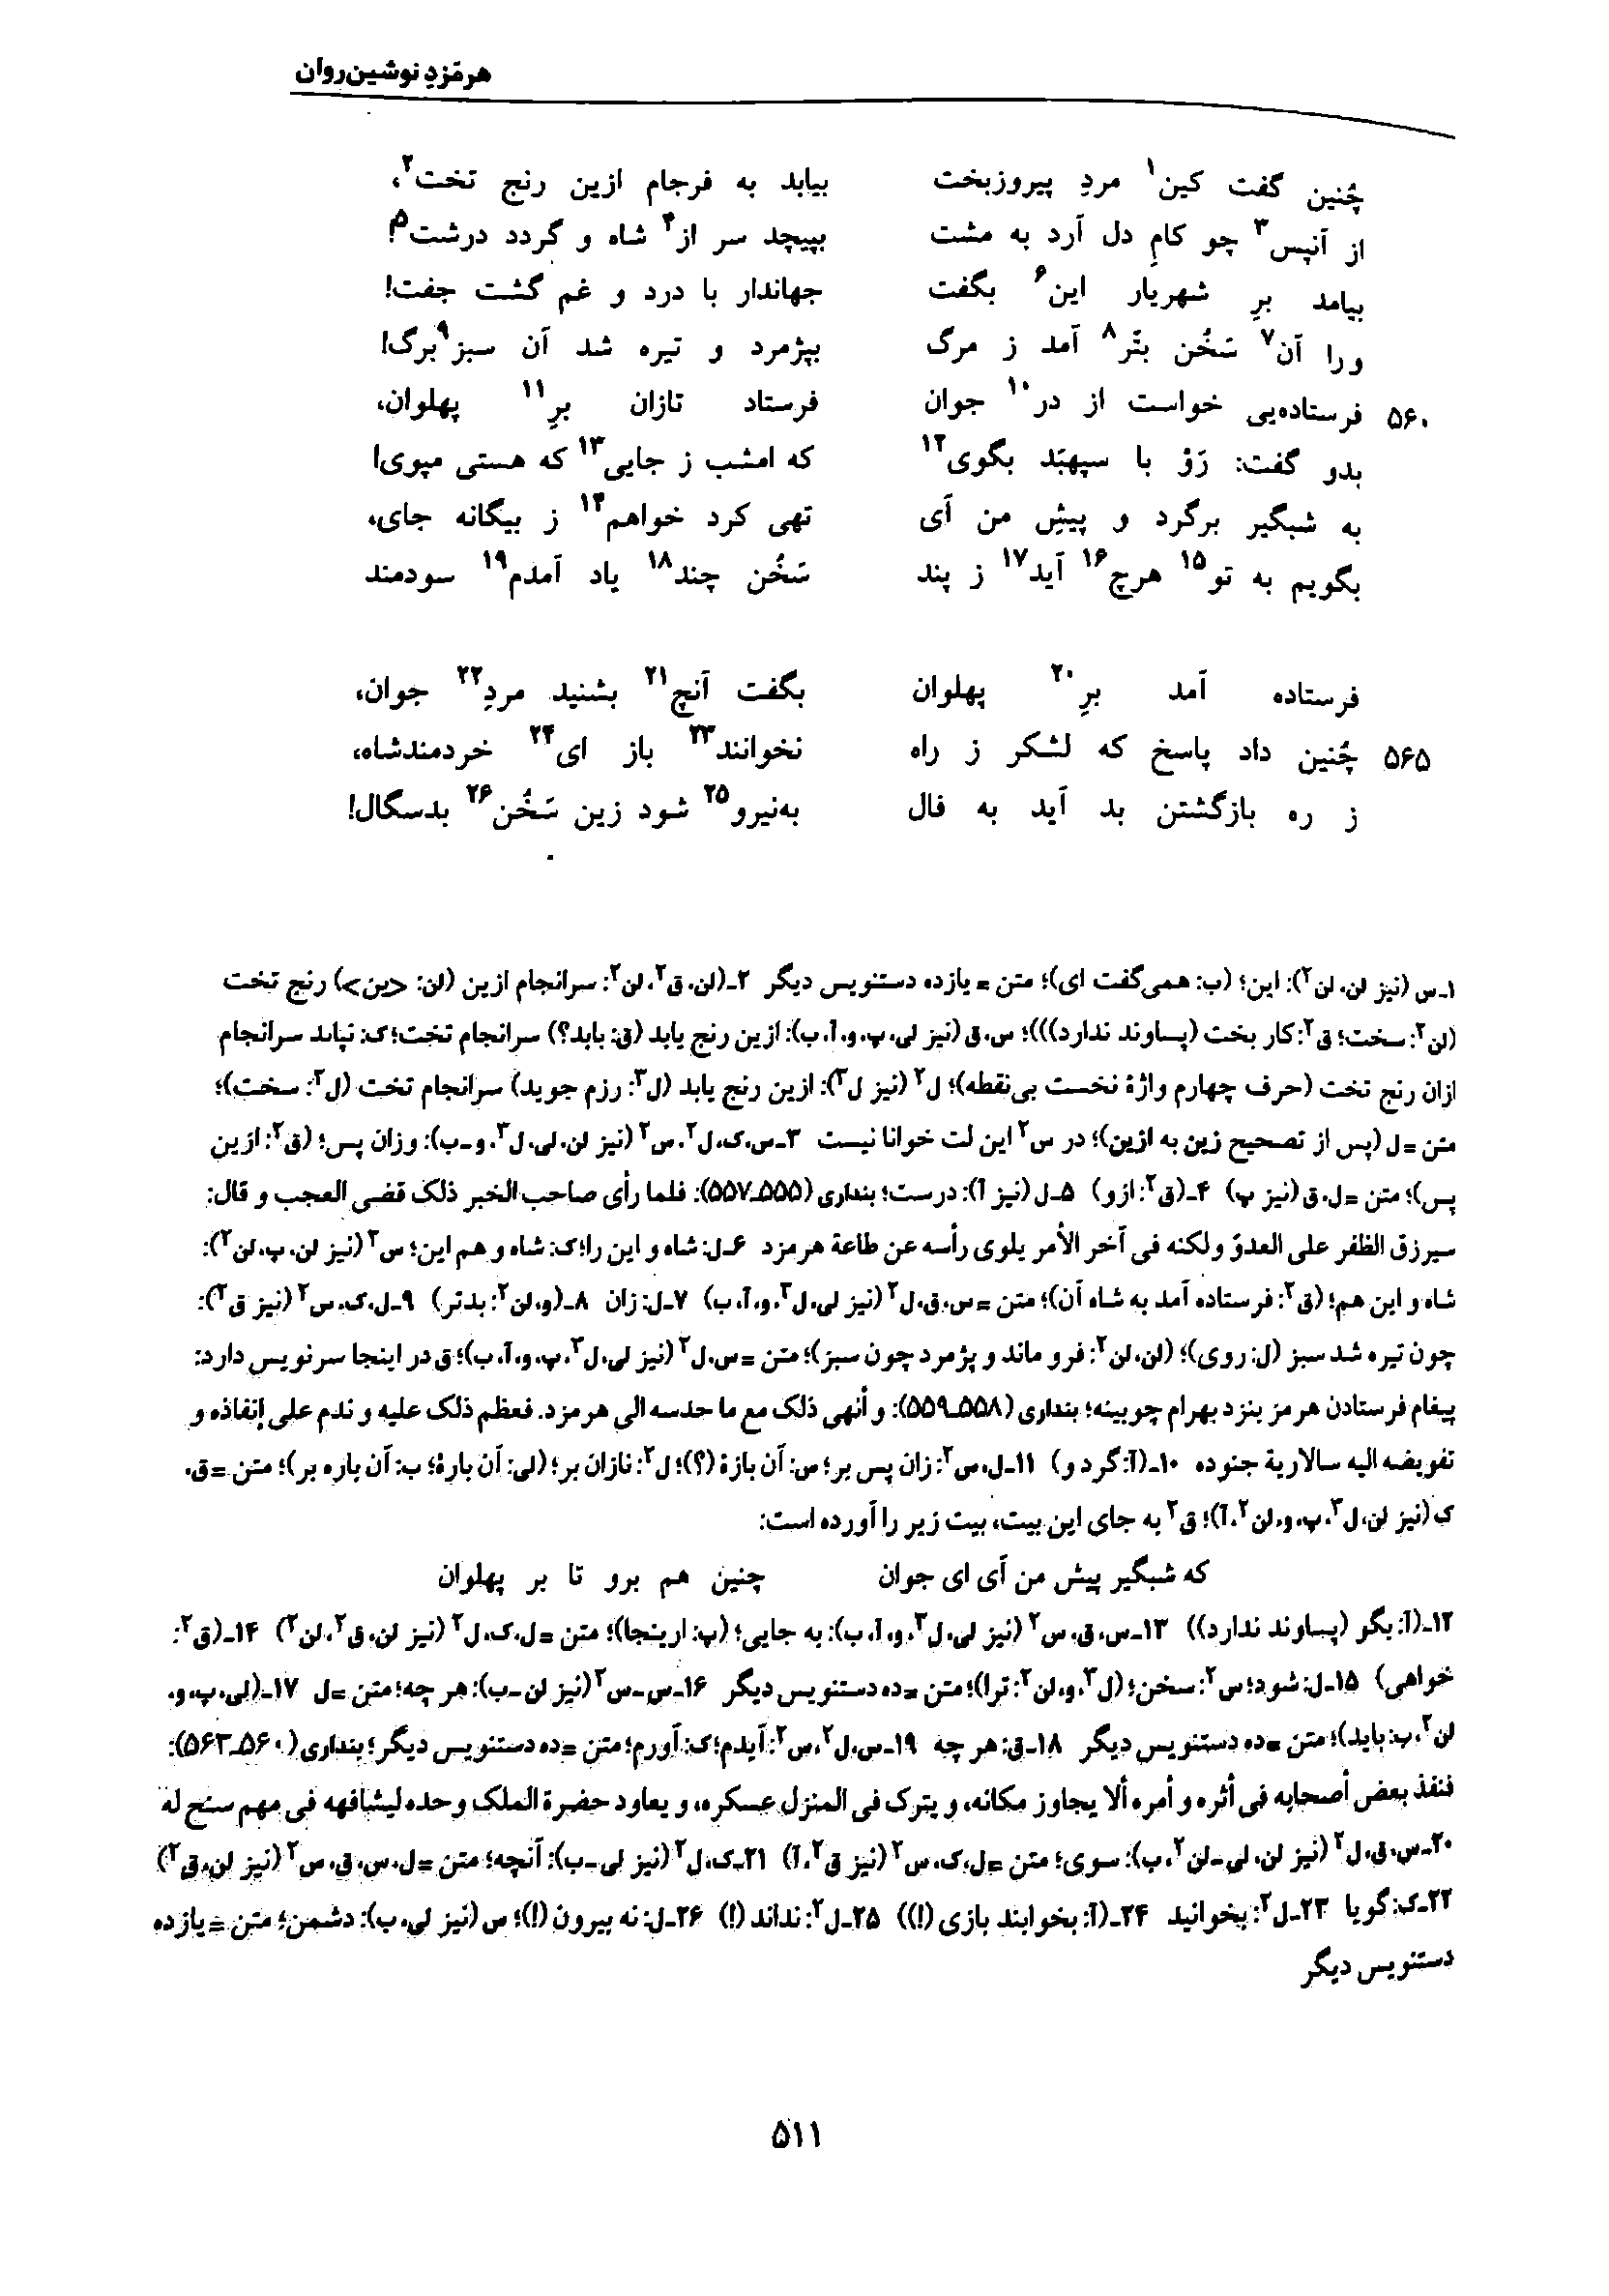 هرمَزدِ نوشین‌روان
چُنین گفت کین۱ مردِ پیروزبخت بیابد به فرجام ازین رنج تخت۲،
از آنپس۳ چو کامِ دل آرد به مشت بپیچد سر از۴ شاه و گردد درشت۵!
بیامد برِ شهریار این۶ بگفت جهاندار با درد و غم گشت جفت!
ورا آن۷ سَخُن بتّر۸ آمد ز مرگ بپژمرد و تیره شد آن سبز۹برگ!
۵۶۰ فرستاده‌یی خواست از در۱۰ جوان فرستاد تازان برِ۱۱ پهلوان،
بدو گفت: رَوْ با سپهبَد بگوی۱۲ که امشب ز جایی۱۳ که هستی مپوی!
به شبگیر برگرد و پیشِ من آی تهی کرد خواهم۱۴ ز بیگانه جای،
بگویم به تو۱۵ هرچ۱۶ آید۱۷ ز پند سَخُن چند۱۸ یاد آمدم۱۹ سودمند
فرستاده آمد برِ۲۰ پهلوان بگفت آنچ۲۱ بشنید مردِ۲۲ جوان،
۵۶۵ چُنین داد پاسخ که لشکر ز راه نخوانند۲۳ باز ای۲۴ خردمندشاه،
ز ره بازگشتن بد آید به فال به‌نیرو۲۵ شود زین سَخُن۲۶ بدسگال!
۱ـ س (نیز لن، لن۲): این؛ (ب: همی‌گفت ای)؛ متن = یازده دستنویس دیگر ۲ـ (لن، ق۲، لن۲: سرانجام ازین (لن: <دین>) رنج تخت
(لن۲: سخت؛ ق۲: کار بخت (پساوند ندارد)))؛ س، ق (نیز لی، پ، و، آ، ب): ازین رنج یابد (ق: بابد؟) سرانجام تخت؛ ک: نپاید سرانجام
ازان رنج تخت (حرف چهارم واژهٔ نخست بی‌نقطه)؛ ل۲ (نیز ل۳): ازین رنج یابد (ل۳: رزم جوید) سرانجام تخت (ل۲: سخت)؛
متن = ل (پس از تصحیح زین به ازین)؛ در س۲ این لت خوانا نیست ۳ـ س، ک، ل۲، س۲ (نیز لن، لی، ل۳، و ـ ب): وزان پس؛ (ق۲: ازین
پس)؛ متن = ل، ق (نیز پ) ۴ـ (ق۲: ازو) ۵ـ ل (نیز آ): درست؛ بنداری (۵۵۵ـ۵۵۷): فلما رأی صاحب الخبر ذلک قضی العجب و قال:
سیرزق الظفر علی العدوّ ولکنه فی آخر الأمر یلوی رأسه عن طاعة هرمزد ۶ـ ل: شاه و این را؛ ک: شاه و هم این؛ س۲ (نیز لن، پ، لن۲):
شاه و این هم؛ (ق۲: فرستاده آمد به شاه آن)؛ متن = س، ق، ل۲ (نیز لی، ل۳، و، آ، ب) ۷ـ ل: زان ۸ـ (و، لن۲: بدتر) ۹ـ ل، ک، س۲ (نیز ق۲):
چون تیره شد سبز (ل: روی)؛ (لن، لن۲: فرو ماند و پژمرد چون سبز)؛ متن = س، ل۲ (نیز لی، ل۳، پ، و، آ، ب)؛ ق در اینجا سرنویس دارد:
پیغام فرستادن هرمز بنزد بهرام چوبینه؛ بنداری (۵۵۸ـ۵۵۹): و أنهی ذلک مع ما حدسه الی هرمزد. فعظم ذلک علیه و ندم علی إنفاذه و
تفویضه الیه سالاریة جنوده ۱۰ـ (آ: گرد و) ۱۱ـ ل، س۲: زان پس بر؛ س: آن بازهٔ (؟)؛ ل۲: نازان بر؛ (لی: آن بارهٔ؛ ب: آن باره بر)؛ متن = ق،
ک (نیز لن، ل۳، پ، و، لن۲، آ)؛ ق۲ به جای این بیت، بیت زیر را آورده است:
که شبگیر پیش من آی ای جوان چنین هم برو تا بر پهلوان
۱۲ـ (آ: بگو (پساوند ندارد)) ۱۳ـ س، ق، س۲ (نیز لی، ل۳، و، آ، ب): به جایی؛ (پ: ارینجا)؛ متن = ل، ک، ل۲ (نیز لن، ق۲، لن۲) ۱۴ـ (ق۲:
خواهی) ۱۵ـ ل: شود؛ س۲: سخن؛ (ل۳، و، لن۲: ترا)؛ متن = ده دستنویس دیگر ۱۶ـ س ـ س۲ (نیز لن ـ ب): هر چه؛ متن = ل ۱۷ـ (لی، پ، و،
لن۲، ب: باید)؛ متن = ده دستنویس دیگر ۱۸ـ ق: هر چه ۱۹ـ س، ل۲، س۲: آیدم؛ ک: آورم؛ متن = ده دستنویس دیگر؛ بنداری (۵۶۰ـ۵۶۳):
فنفذ بعض أصحابه فی أثره و أمره ألا یجاوز مکانه، و یترک فی المنزل عسکره، و یعاود حضرة الملک وحده لیشافهه فی مهم سنح له
۲۰ـ س، ق، ل۲ (نیز لن، لی ـ لن۲، ب): سوی؛ متن = ل، ک، س۲ (نیز ق۲، آ) ۲۱ـ ک، ل۲ (نیز لی ـ ب): آنچه؛ متن = ل، س، ق، س۲ (نیز لن، ق۲)
۲۲ـ ک: گویا ۲۳ـ ل۲: بخوانید ۲۴ـ (آ: بخوابند بازی (!)) ۲۵ـ ل۲: نداند (!) ۲۶ـ ل: نه بیرون (!)؛ س (نیز لی، ب): دشمن؛ متن = یازده
دستنویس دیگر
۵۱۱